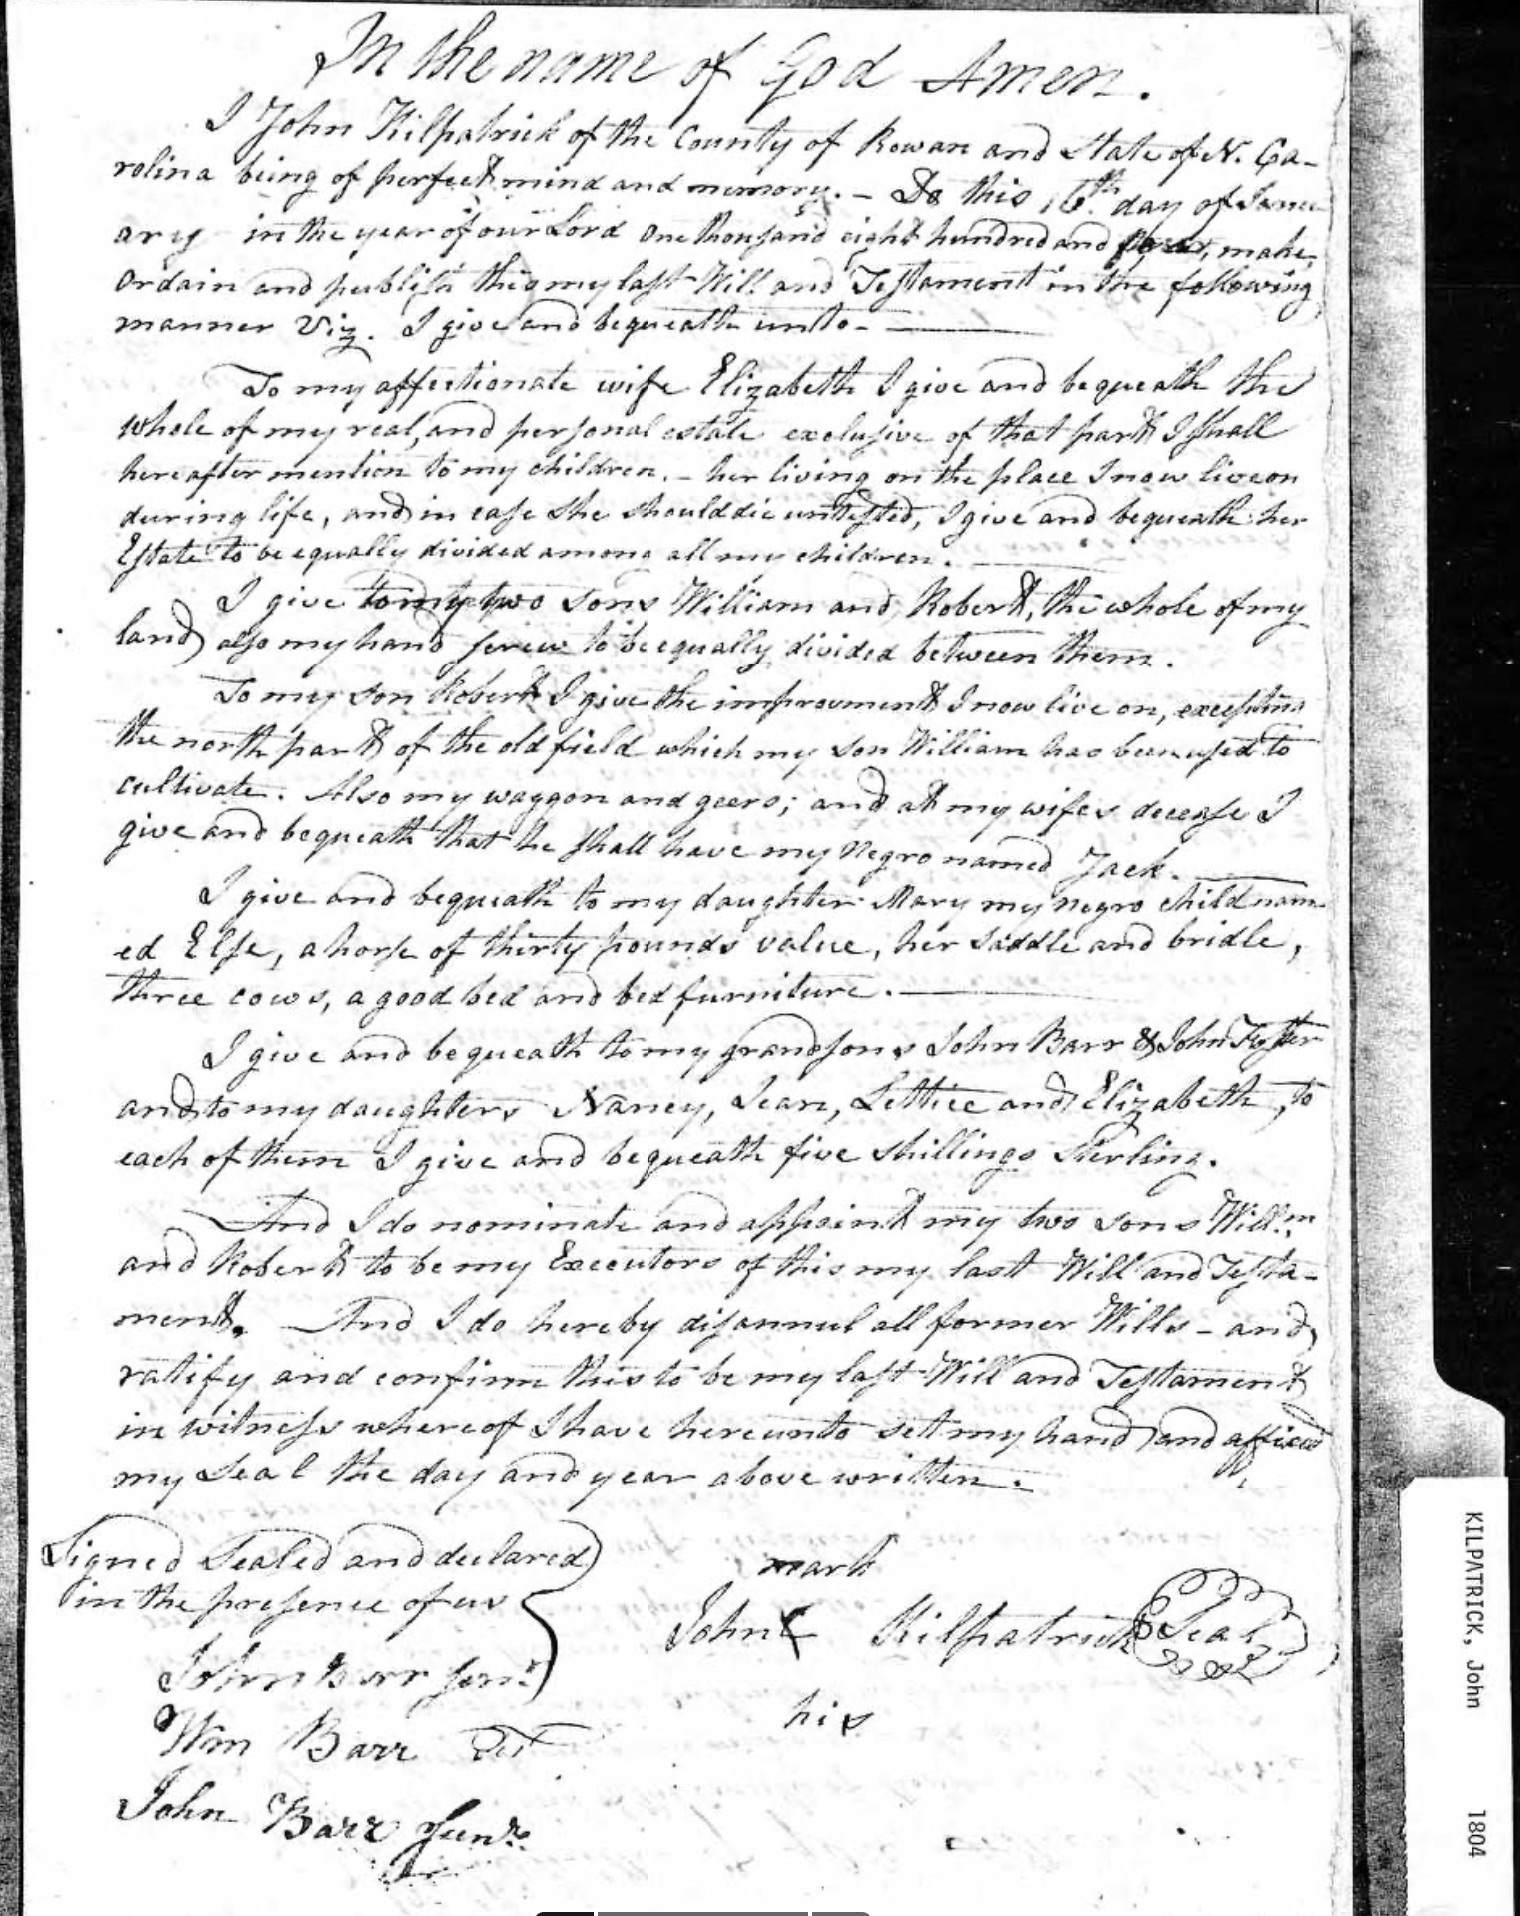 In the name of God Amen.
I John Kilpatrick of the County of Rowan and State of N. Ca-
rolina being of perfect mind and memory. - Do this 16th day of Janu
ary in the year of our Lord One thousand eight hundred and four, make,
Ordain and publish this my last Will and Testament in the following
manner Viz. I give and bequeath unto -
To my affectionate wife Elizabeth I give and bequeath the
whole of my real, and personal estate exclusive of that part I shall
hereafter mention to my children. - her living on the place I now live on
during life, and in case she should die untested, I give and bequeath her
Estate to be equally divided among all my children.
I give to my two sons William and Robert, the whole of my
land also my hand screw to be equally divided between them.
To my son Robert I give the improvment I now live on, excepting
the north part of the old field which my son William has been used to
cultivate. Also my waggon and geers; and at my wifes decease I
give and bequeath that he shall have my Negro named Jack.
I give and bequeath to my daughter Mary my negro child nam-
ed Else, a horse of thirty pounds value, her saddle and bridle,
three cows, a good bed and bed furniture.
I give and bequeath to my grandsons John Barr & John Foster
and to my daughters Nancy, Jean, Lettice and Elizabeth, to
each of them I give and bequeath five shillings sterling.
And I do nominate and appoint my two sons Willm
and Robert to be my Executors of this my last Will and Testa-
ment. And I do hereby disannul all former Wills - and
ratify and confirm this to be my last Will and Testament
in witness whereof I have hereunto set my hand and affixed
my Seal the day and year above written.
Signed Sealed and declared
in the presence of us
mark
John X Kilpatrick Seal
his
John Barr Senr
Wm Barr
John Barr Junr
KILPATRICK, John 1804